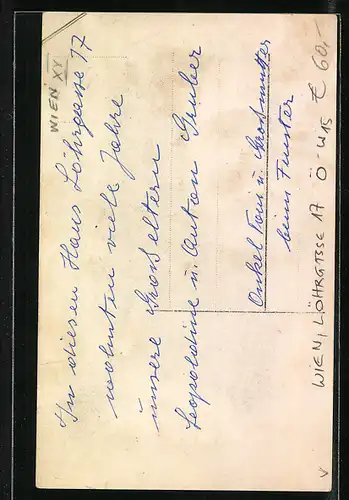 WIEN XV
In diesen Haus Löhrgasse 17
wohnten viele Jahre
unsere Großeltern
Leopoldine u. Anton Gruber
Onkel Toni u. Großmutter
beim Fenster
WIEN, LÖHRGASSE 17 Ö-U15 € 60,-
V